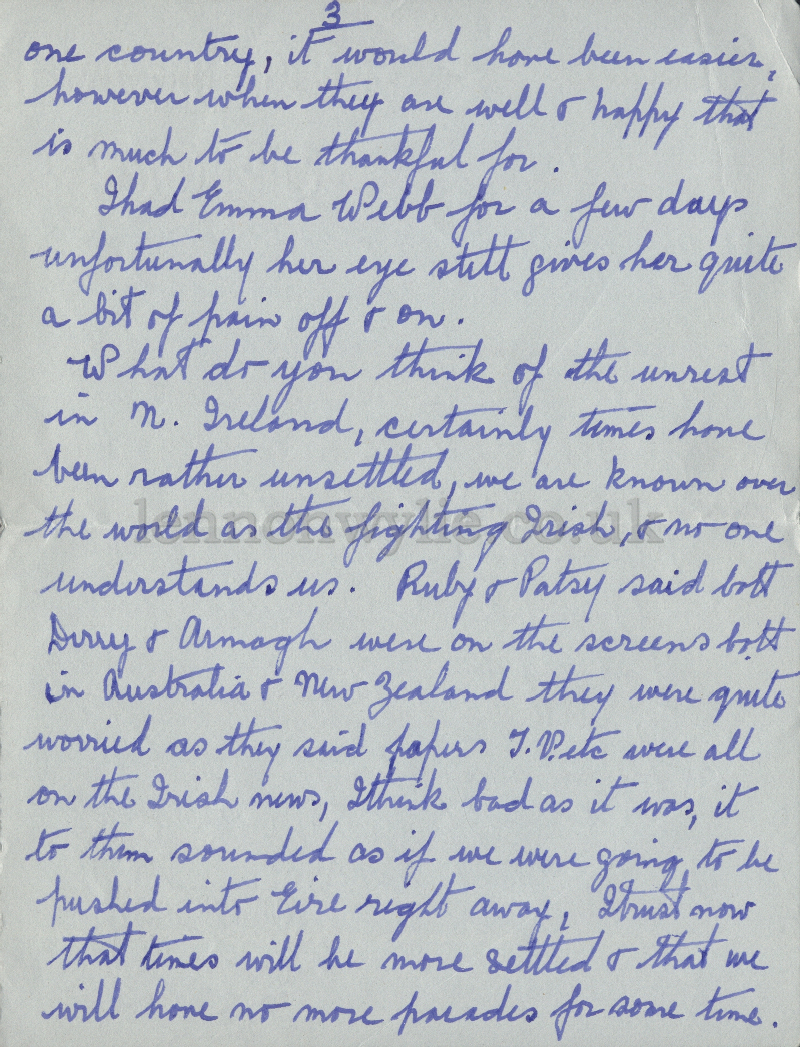 3
one country, it would have been easier,
however when they are well & happy that
is much to be thankful for.
I had Emma Webb for a few days
unfortunally her eye still gives her quite
a bit of pain off & on.
What do you think of the unrest
in N. Ireland, certainly times have
been rather unsettled, we are known over
the world as the fighting Irish, & no one
understands us. Ruby & Patsy said both
Derry & Armagh were on the screens both
in Australia & New Zealand they were quite
worried as they said papers T.V. etc were all
on the Irish news, I think bad as it was, it
to them sounded as if we were going, to be
pushed into Eire right away, I trust now
that times will be more settled & that we
will have no more parades for some time.
lennonwylie.co.uk